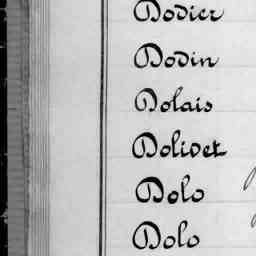 Dodier
Dodin
Dolais
Dolivet
Dolo
Dolo